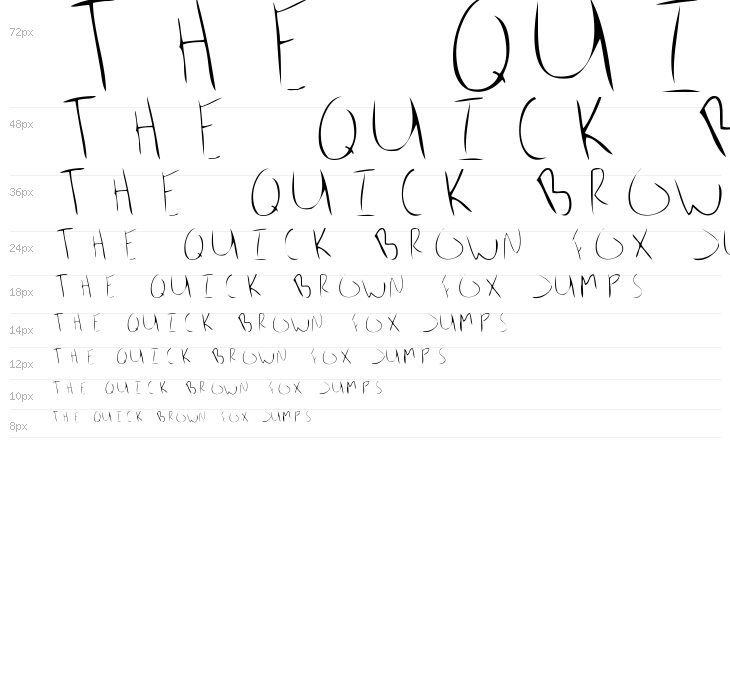 72px THE QUI
48px THE QUICK B
36px THE QUICK BROW
24px THE QUICK BROWN FOX JU
18px THE QUICK BROWN FOX JUMPS
14px THE QUICK BROWN FOX JUMPS
12px THE QUICK BROWN FOX JUMPS
10px THE QUICK BROWN FOX JUMPS
8px THE QUICK BROWN FOX JUMPS